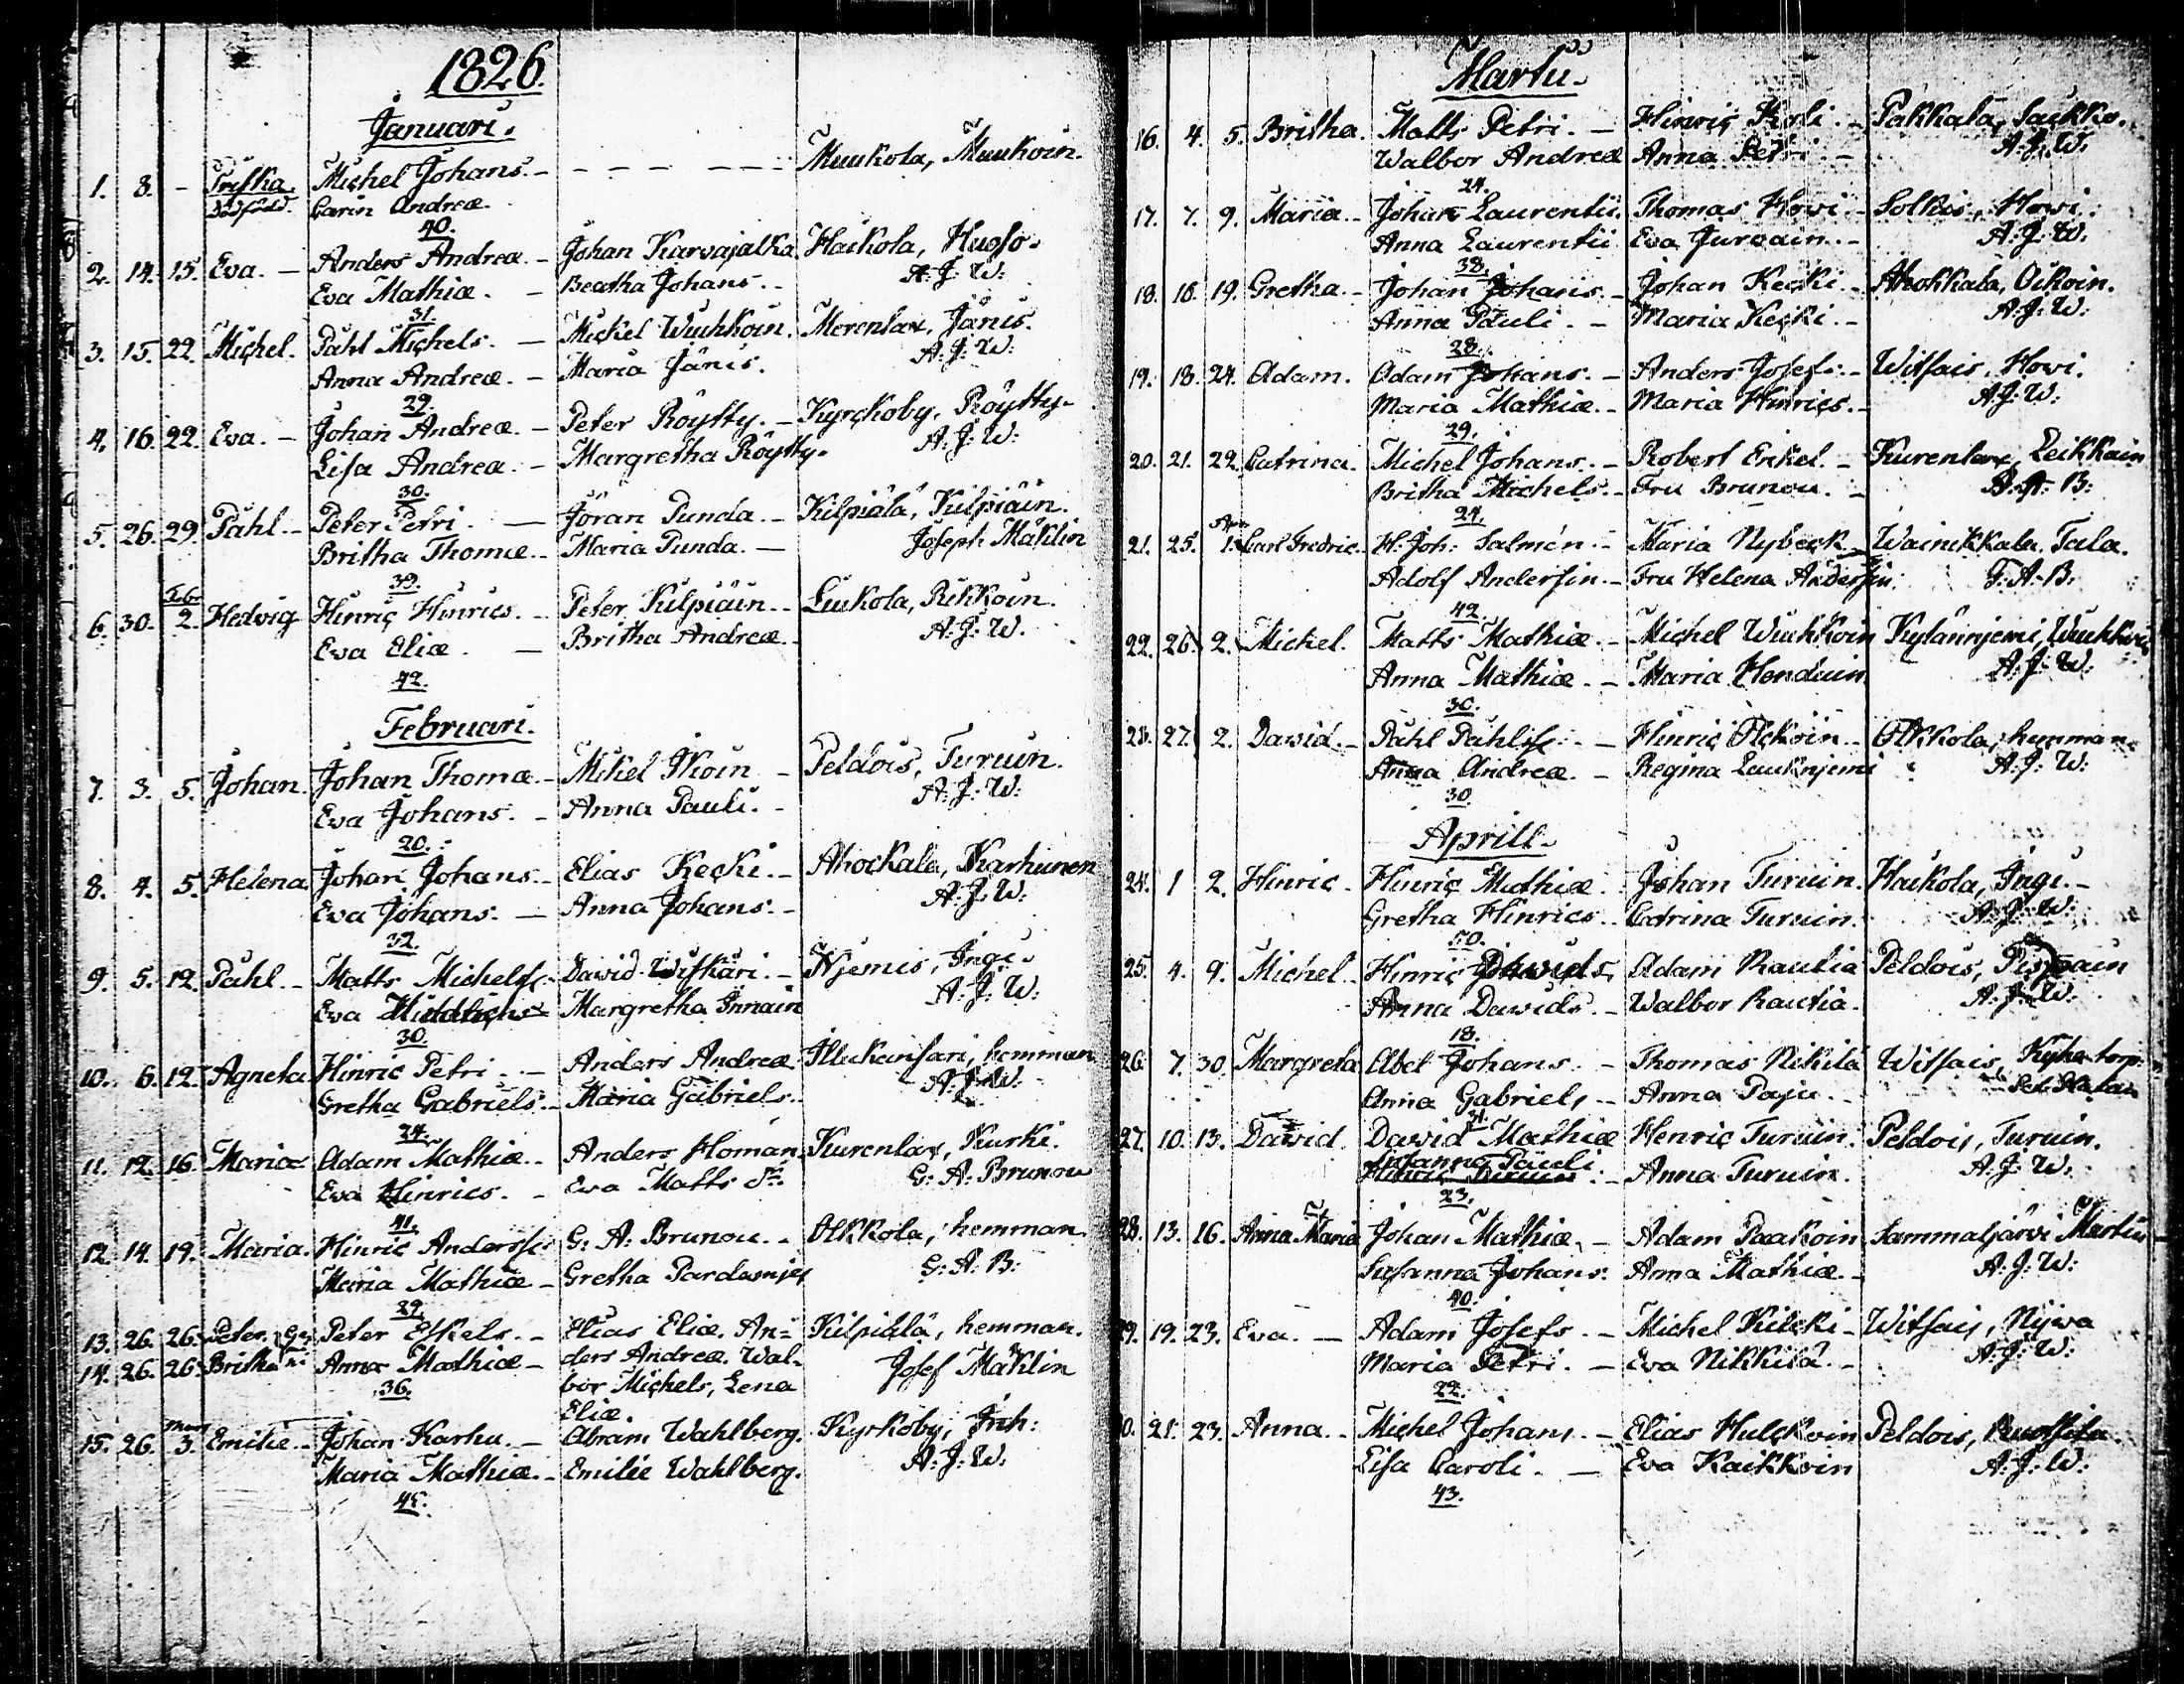 1826.
Januari.
1. 8. – Michel Johans. – – – – – – Muukola, Muukoin.
dödfödd. Carin Andreæ.
40.
2. 14. 15. Eva. – Anders Andreæ. – Johan Karvajalka Haikola, Hugfo.
Eva Mathiæ. – Beatha Johans. – A: J: W:
31.
3. 15. 22. Michel. Påhl Michels. – Michel Wuohkoin. Merenlax, Jänis.
Anna Andreæ. – Maria Jänis. A: J: W:
29.
4. 16. 22. Eva. – Johan Andreæ. – Peter Röytty. – Kyrckoby, Röytty.
Lisa Andreæ. – Margretha Röytty. A: J: W:
30.
5. 26. 29. Påhl. – Peter Petri. – Jöran Punda. – Kilpiälä, Kilpiäin.
Britha Thomæ. – Maria Punda. – Joseph Mählin
39.
6. 30. Febr 2. Hedvig Hinric Hinrics. – Peter Kilpiäin. – Liukola, Rikkoin.
Eva Eliæ. – Britha Andreæ. – A: J: W.
42.
Februari.
7. 3. 5. Johan. Johan Thomæ. – Mikel Ikoin – Peldois, Turuin.
Eva Johans. – Anna Pauli. – A: J: W:
20.
8. 4. 5. Helena Johan Johans. – Elias Kecki. – Ahockala, Karhunen
Eva Johans. – Anna Johans. – A: J: W:
32.
9. 5. 12. Påhl. – Matts Michelss. David – Njemis, Inge.
Eva Margretha Innain A: J: W:
30.
10. 6. 12. Agneta Hinric Petri. – Anders Andreæ. hemman
Gretha Gabriels. – Maria Gabriels. – A: J: W:
24.
11. 12. 16. Maria Adam Mathiæ. – Anders Homan. Kurenlax, Kurki.
Eva Hinrics. – Eva Matts dr. G: A: Brunou
41.
12. 14. 19. Maria. Hinric Anderss. G: A: Brunou. – Olkkola, hemman
Maria Mathiæ – Gretha G: A: B:
13. 26. 26. Peter. Peter Eskels. – Elias Eliæ. An=
14. 26. 26. Britha Anna Mathiæ – ders Andreæ. Wal- Kilpiälä, hemman.
36. bor Michels, Lena Josef Mählin
Eliæ.
15. 26. Mars 3. Emilie. – Johan Karhu. – Abram Wahlberg. Kyrkoby, Inh:
Maria Mathiæ. – Emilie Wahlberg. A: J: W.
45.
Martii.
16. 4. 5. Britha. Matts Petri. – Hinric – Pakkala,
Walbor Andreæ Anna Petri. – A: J: W:
24.
17. 7. 9. Maria. – Johan Laurentii. Thomas Howi. – Solkis, Howi.
Anna Laurentii Eva Jurvain. – A: J: W:
38.
18. 18. 19. Gretha. – Johan Johans. – Johan Kecki. – Ahokkala, Oikoin.
Anna Pauli. – Maria Kecki. – A: J: W:
28.
19. 18. 24. Adam. Adam Johans. – Anders Josefs. – Witsais, Howi.
Maria Mathiæ. – Maria Hinrics. – A: J: W:
29.
20. 21. 22. Catrina. Michel Johans. – Robert Enkel. – Kurenlax, Leikkain
Britha Michels. – Fru Brunou. – G: A: B:
24.
21. 25. Apr 1. Carl Fredric. – H: Joh: Salmén. – Maria Nybeck Wainikkala. Tala.
Adolf Andersin. – Fru Helena Andersin. G: A: B:
42.
22. 26. 2. Michel. Matts Mathiæ. – Michel Wuohkoin Kylänniemi,
Anna Mathiæ. – Maria Honduin A: J: W:
30.
23. 27. 2. David. – Påhl Påhlss. – Hinric Olckoin. – Olkkola, hemman.
Anna Andreæ. – Regina Lauknjemi A: J: W:
30.
Aprill.
24. 1 2. Hinric. Hinric Mathiæ. Johan Turuin. Haikola, Inge. –
Gretha Hinrics. – Catrina Turuin. A: J: W:
50.
25. 4. 9. Michel. Hinric Davids. Adam Rautia Peldois,
Anna Davids. – Walbor Rautia. A: J: W:
18.
26. 7. 30. Margreta Abel Johans. – Thomas Nikilä Witsais, torp.
Anna Gabriels – Anna Paju. –
31.
27. 10. 13. David. David Mathiæ Henric Turuin. Peldois, Turuin.
Susanna Pauli. – Anna Turuin. A: J: W.
23.
28. 13. 16. Anna Maria Johan Mathiæ. – Adam Paakoin Sammaljärvi Martik
Susanna Johans. Anna Mathiæ. – A: J: W:
40.
29. 19. 23. Eva. – Adam Josefs. – Michel Kilcki – Witsais, Nijva
Maria Petri. – Eva Nikkilä. – A: J: W:
22.
30. 21. 23. Anna. – Michel Johans – Elias Hulckoin Peldois,
Lisa Caroli. – Eva Kaikkoin A: J: W:
43.